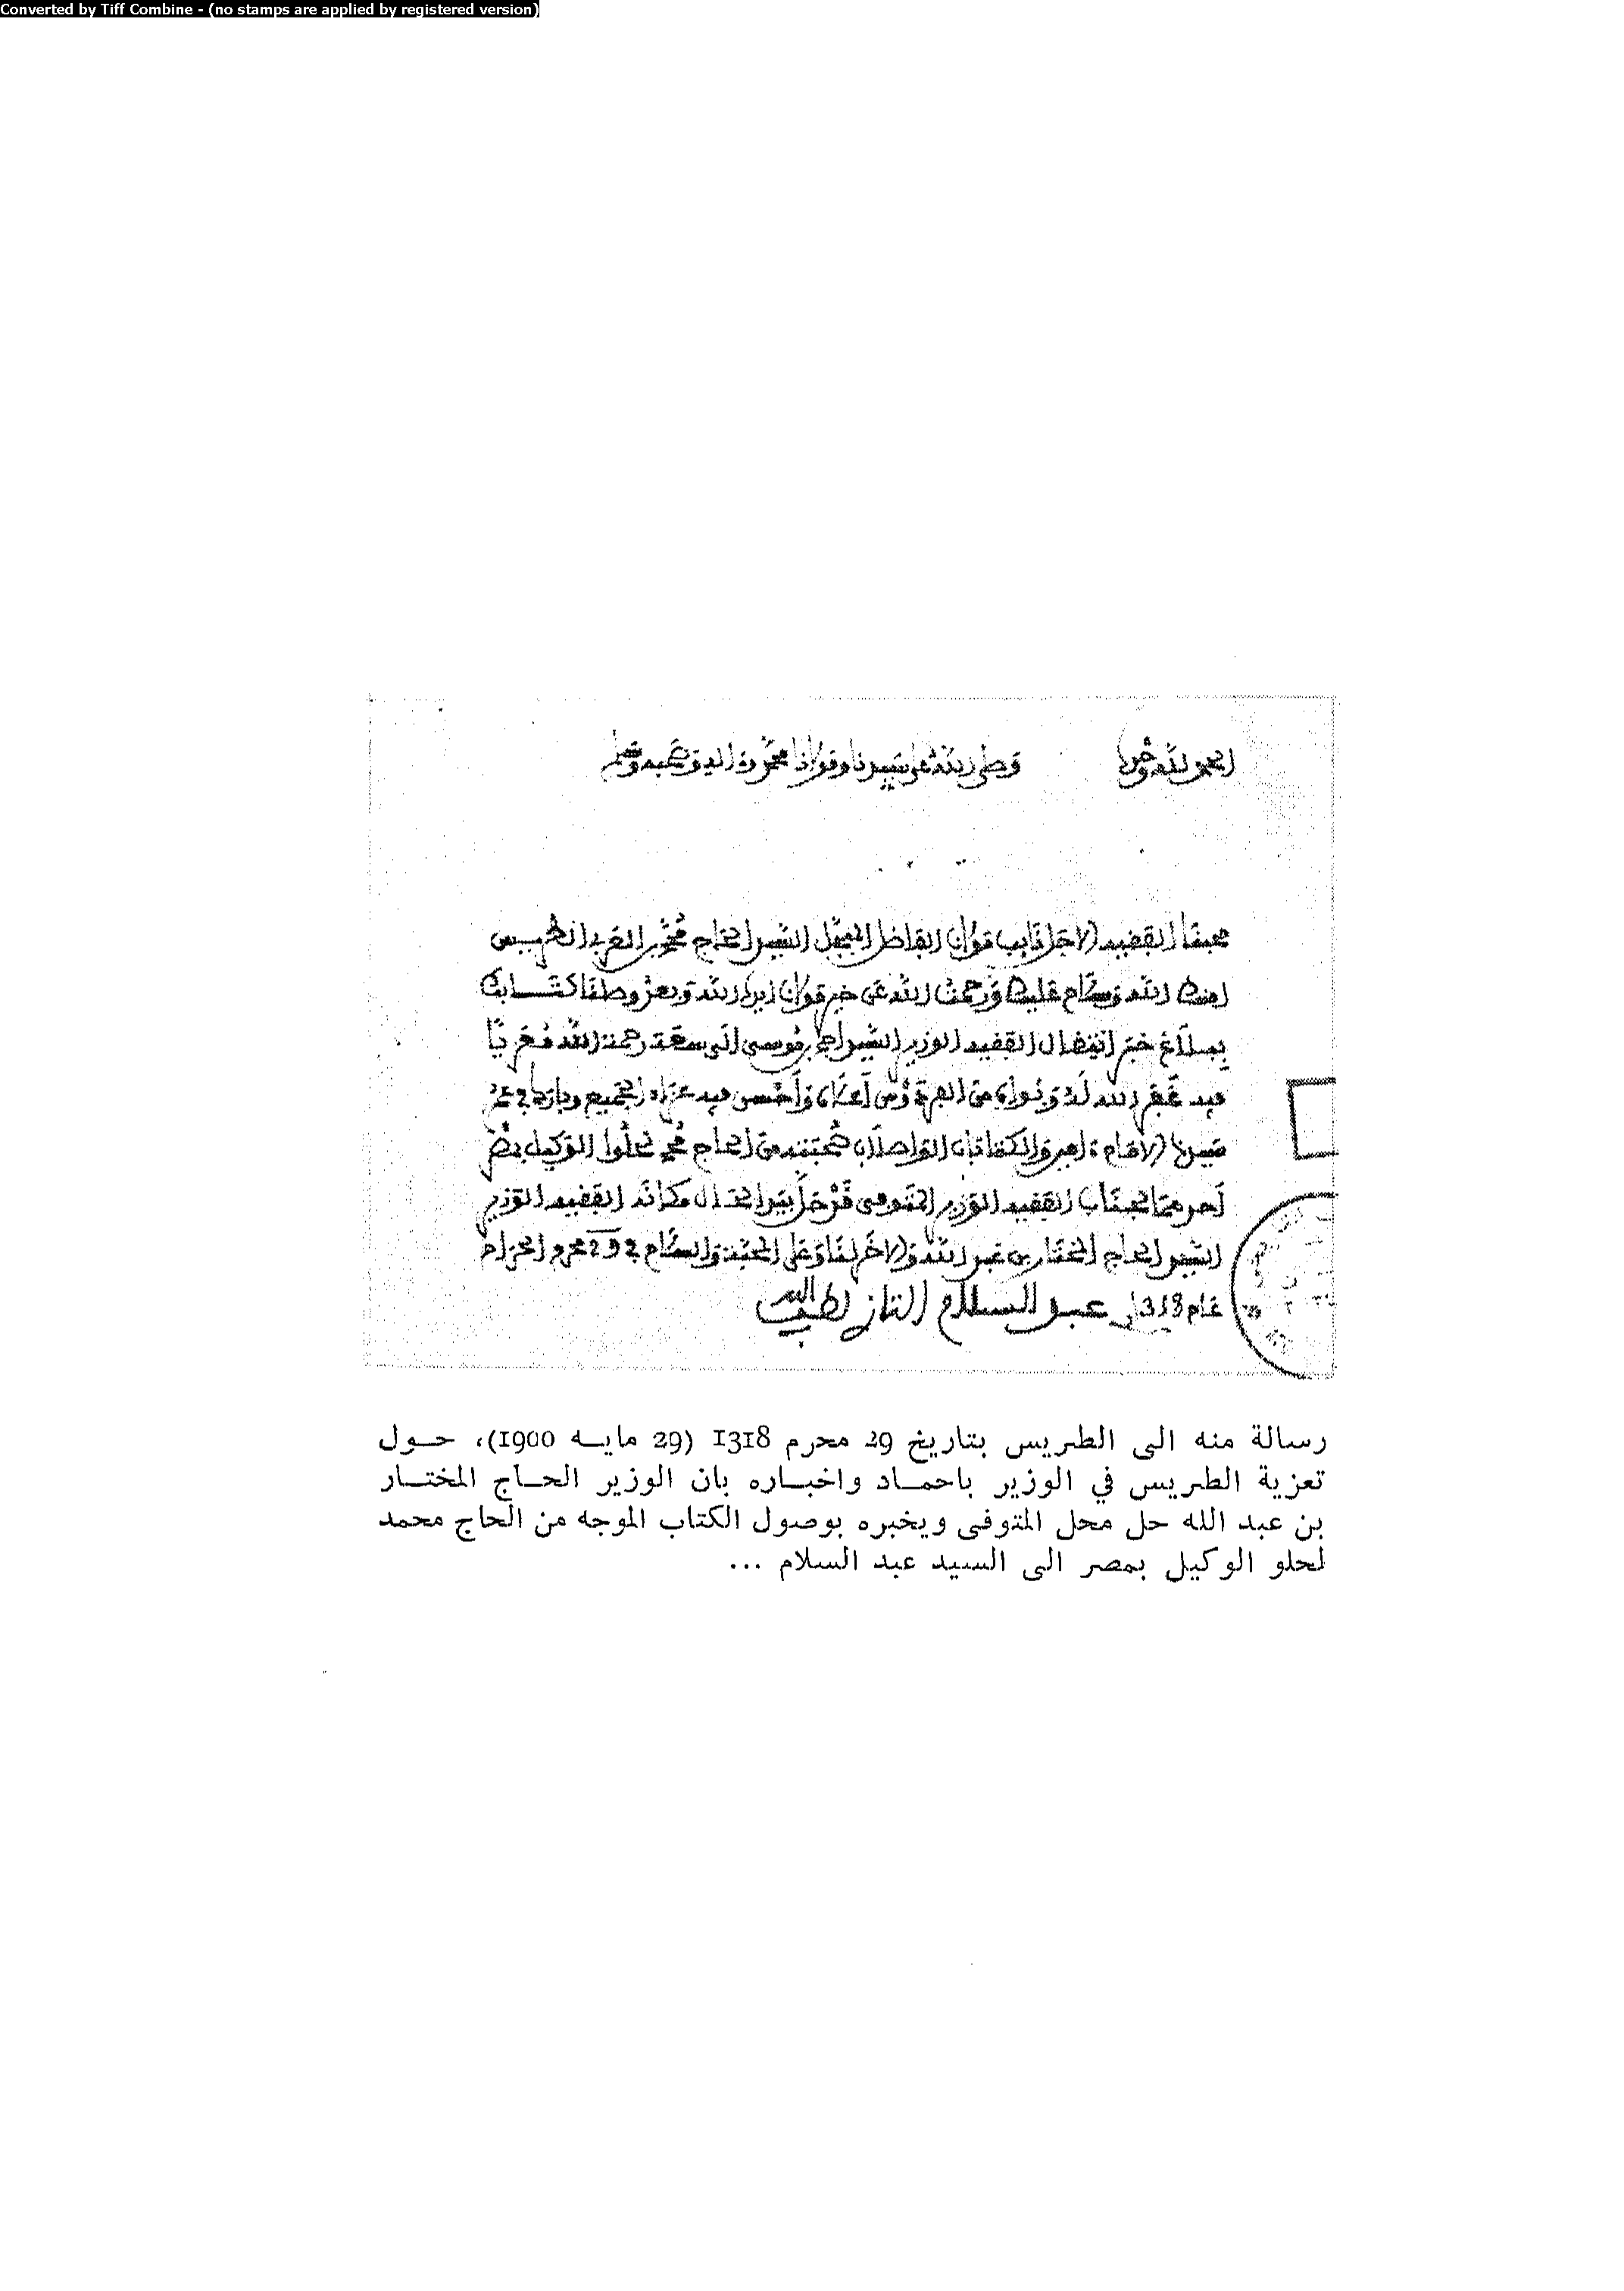 Converted by Tiff Combine - (no stamps are applied by registered version)
الحمد لله وحده
وصلى الله على سيدنا ومولانا محمد وءاله وصحبه وسلم
محبنا الفقيه الاجل نايب مولانا الفاضل المبجل السيد الحاج محمد بن العربي الطريس
امنك الله وسلام عليك ورحمت الله عن خير مولانا ايده الله وبعد وصلنا كتابك
ببلاغ خبر انتقال الفقيه الوزير السيد احمد بن موسى الى سعة رحمة الله معزيا
فيه غفر الله له وبوأه من الفردوس أعلاه وأحسن فيه عزاء الجميع وبارك في عمر
سيدنا الامام والكتابان الواصلان صحبته من الحاج محمد لحلوا الوكيل بمصر
أحدهما لجناب الفقيه الوزير المتوفى قد حل بيد الحال مكانه الفقيه الوزير
السيد الحاج المختار بن عبد الله والاخر لنا وعلى المحبة والسلام في 29 محرم الحرام
عام 1318 عبد السلام التازي لطف الله به
رسالة منه الى الطريس بتاريخ 29 محرم 1318 (29 مايـه 1900)، حـول
تعزية الطريس في الوزير باحمـاد واخبـاره بان الوزير الحـاج المختـار
بن عبد الله حل محل المتوفى ويخبره بوصول الكتاب الموجه من الحاج محمد
لحلو الوكيل بمصر الى السيد عبد السلام ...